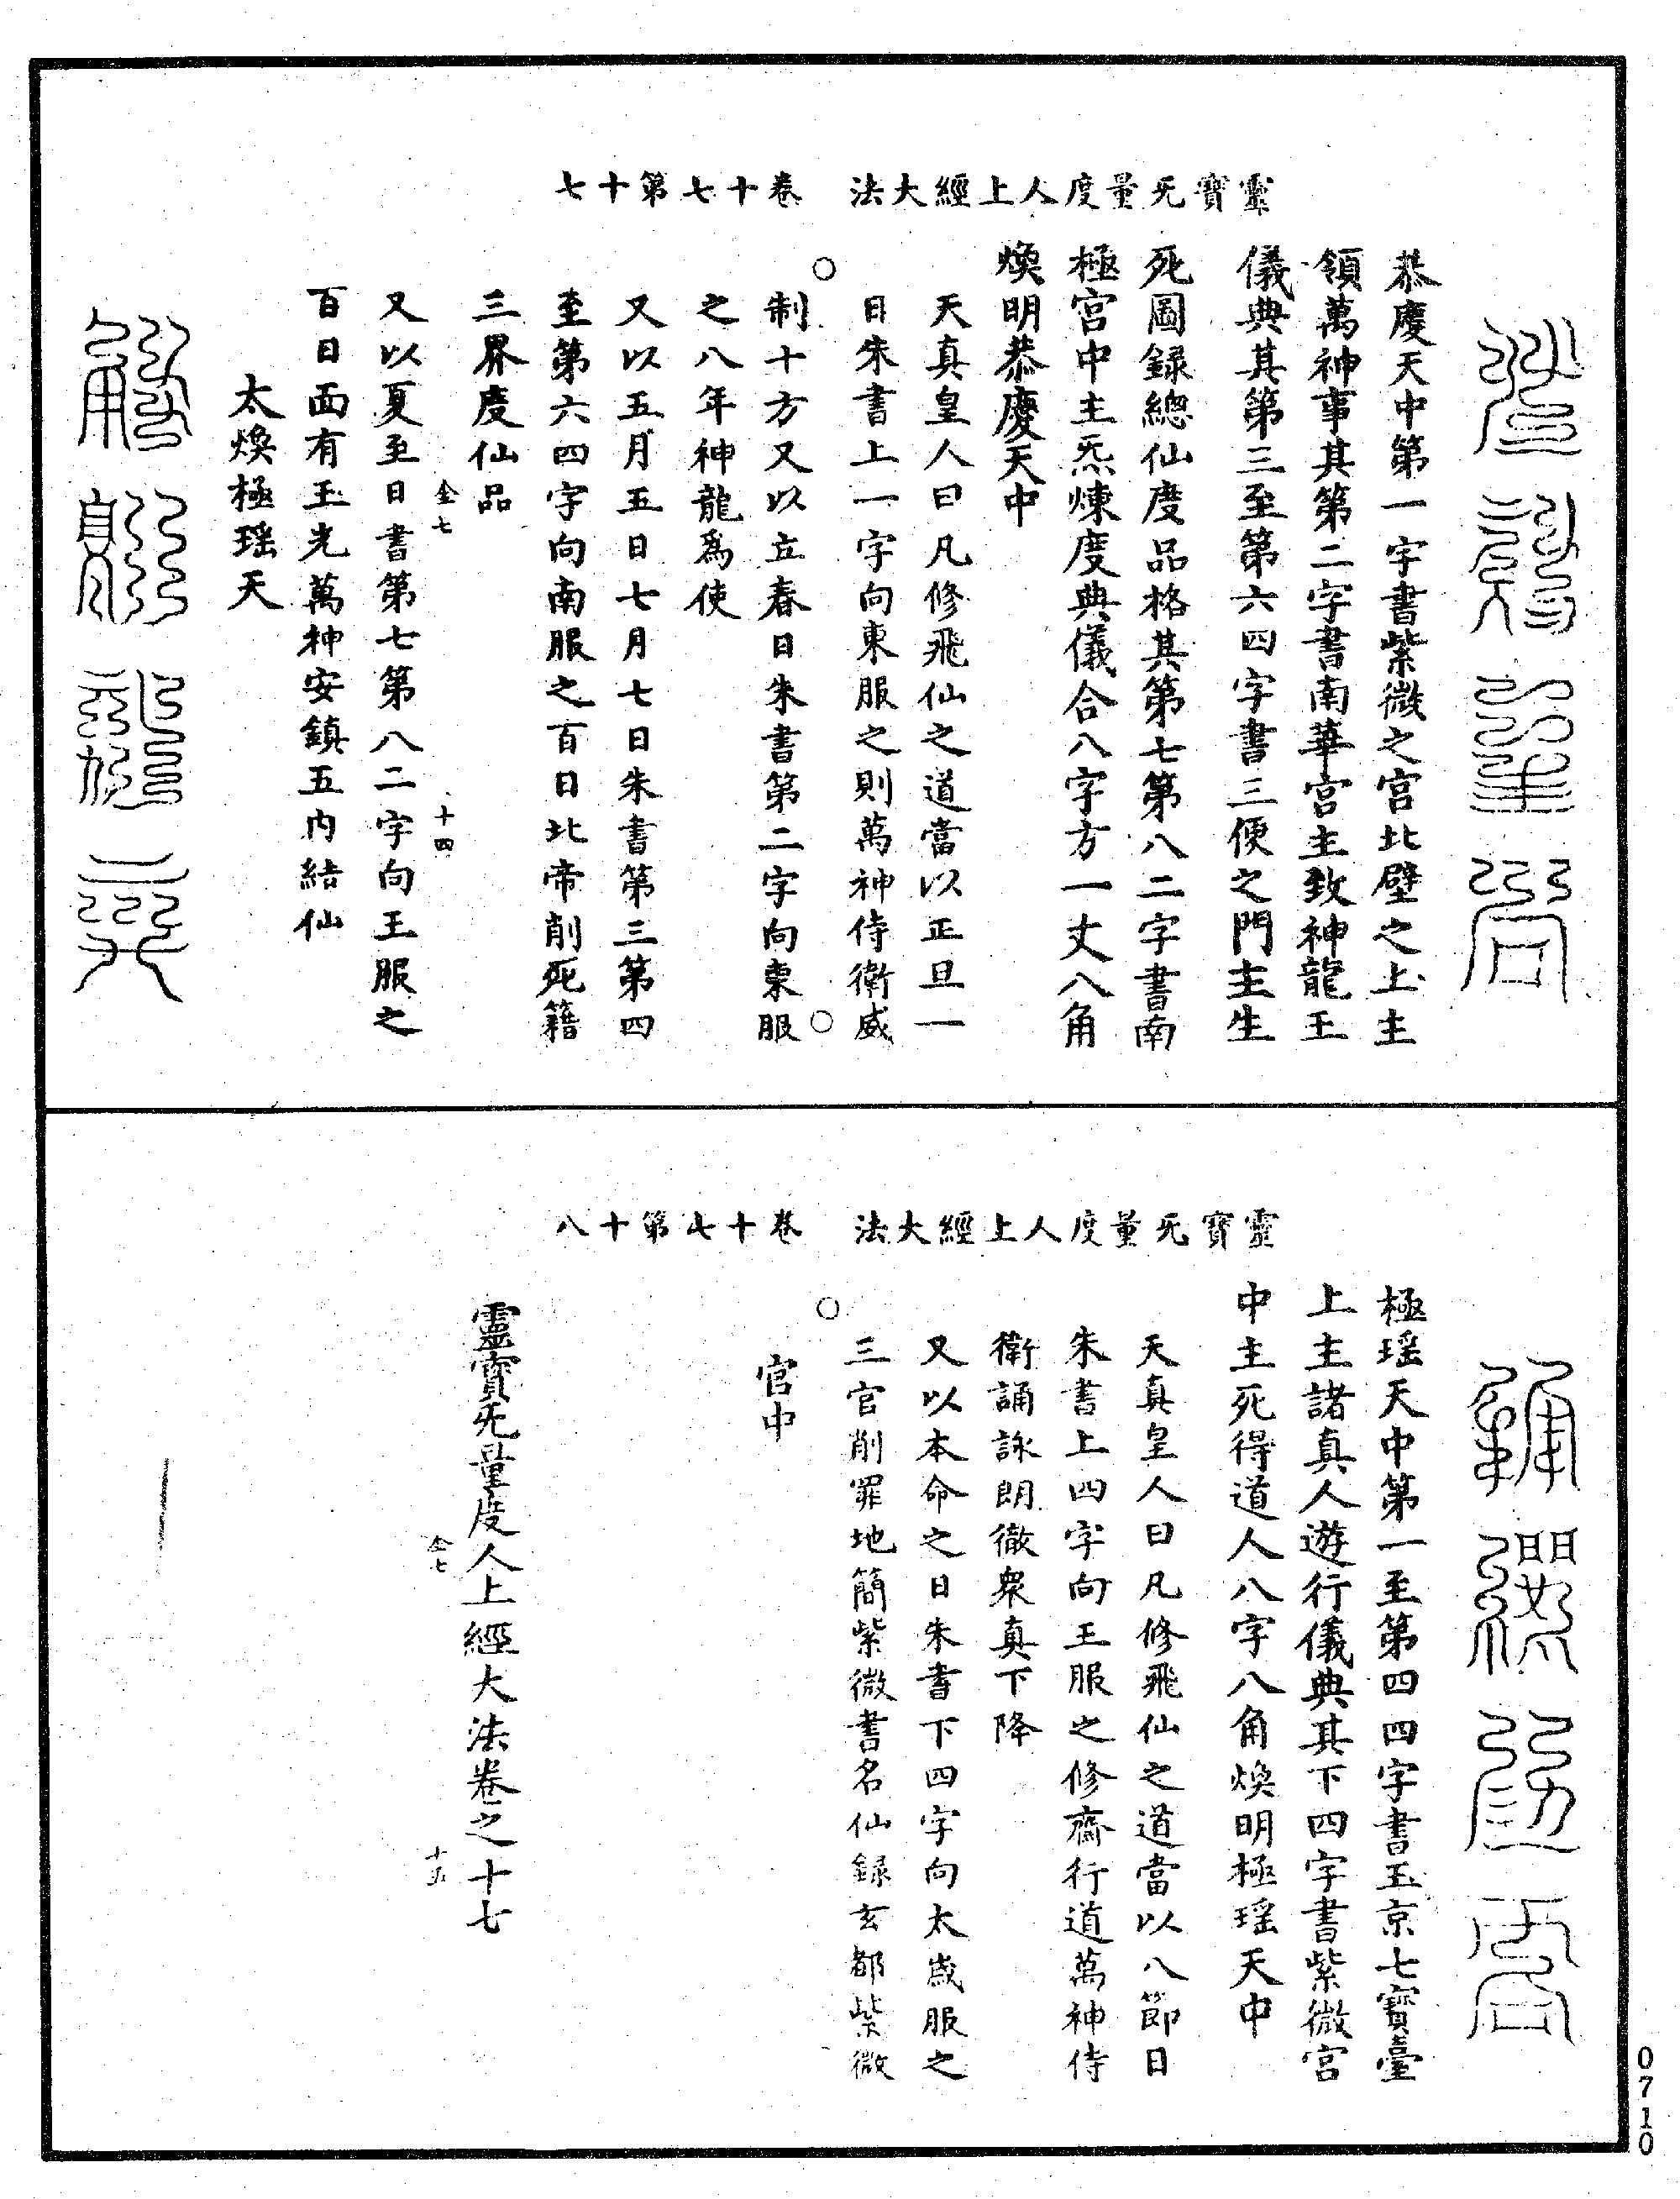 靈寶旡量度人上經大法　卷十七第十七
恭慶天中第一字書紫微之宮北壁之上主
領萬神事其第二字書南華宮主致神龍王
儀典其第三至第六四字書三便之門主生
死圖録總仙度品格其第七第八二字書南
極宮中主炁煉度典儀合八字方一丈八角
煥明恭慶天中
天真皇人曰凡修飛仙之道當以正旦一
日朱書上一字向東服之則萬神侍衛威
制十方又以立春日朱書第二字向東服
之八年神龍爲使
又以五月五日七月七日朱書第三第四
至第六四字向南服之百日北帝削死籍
三界慶仙品
金七　十四
又以夏至日書第七第八二字向王服之
百日面有玉光萬神安鎮五内結仙
太煥極瑶天
靈寶旡量度人上經大法　卷十七第十八
極瑶天中第一至第四四字書玉京七寶臺
上主諸真人遊行儀典其下四字書紫微宮
中主死得道人八字八角煥明極瑶天中
天真皇人曰凡修飛仙之道當以八節日
朱書上四字向王服之修齋行道萬神侍
衛誦詠朗徹衆真下降
又以本命之日朱書下四字向太歲服之
三官削罪地簡紫微書名仙録玄都紫微
官中
金七　十五
靈寶旡量度人上經大法卷之十七
0710